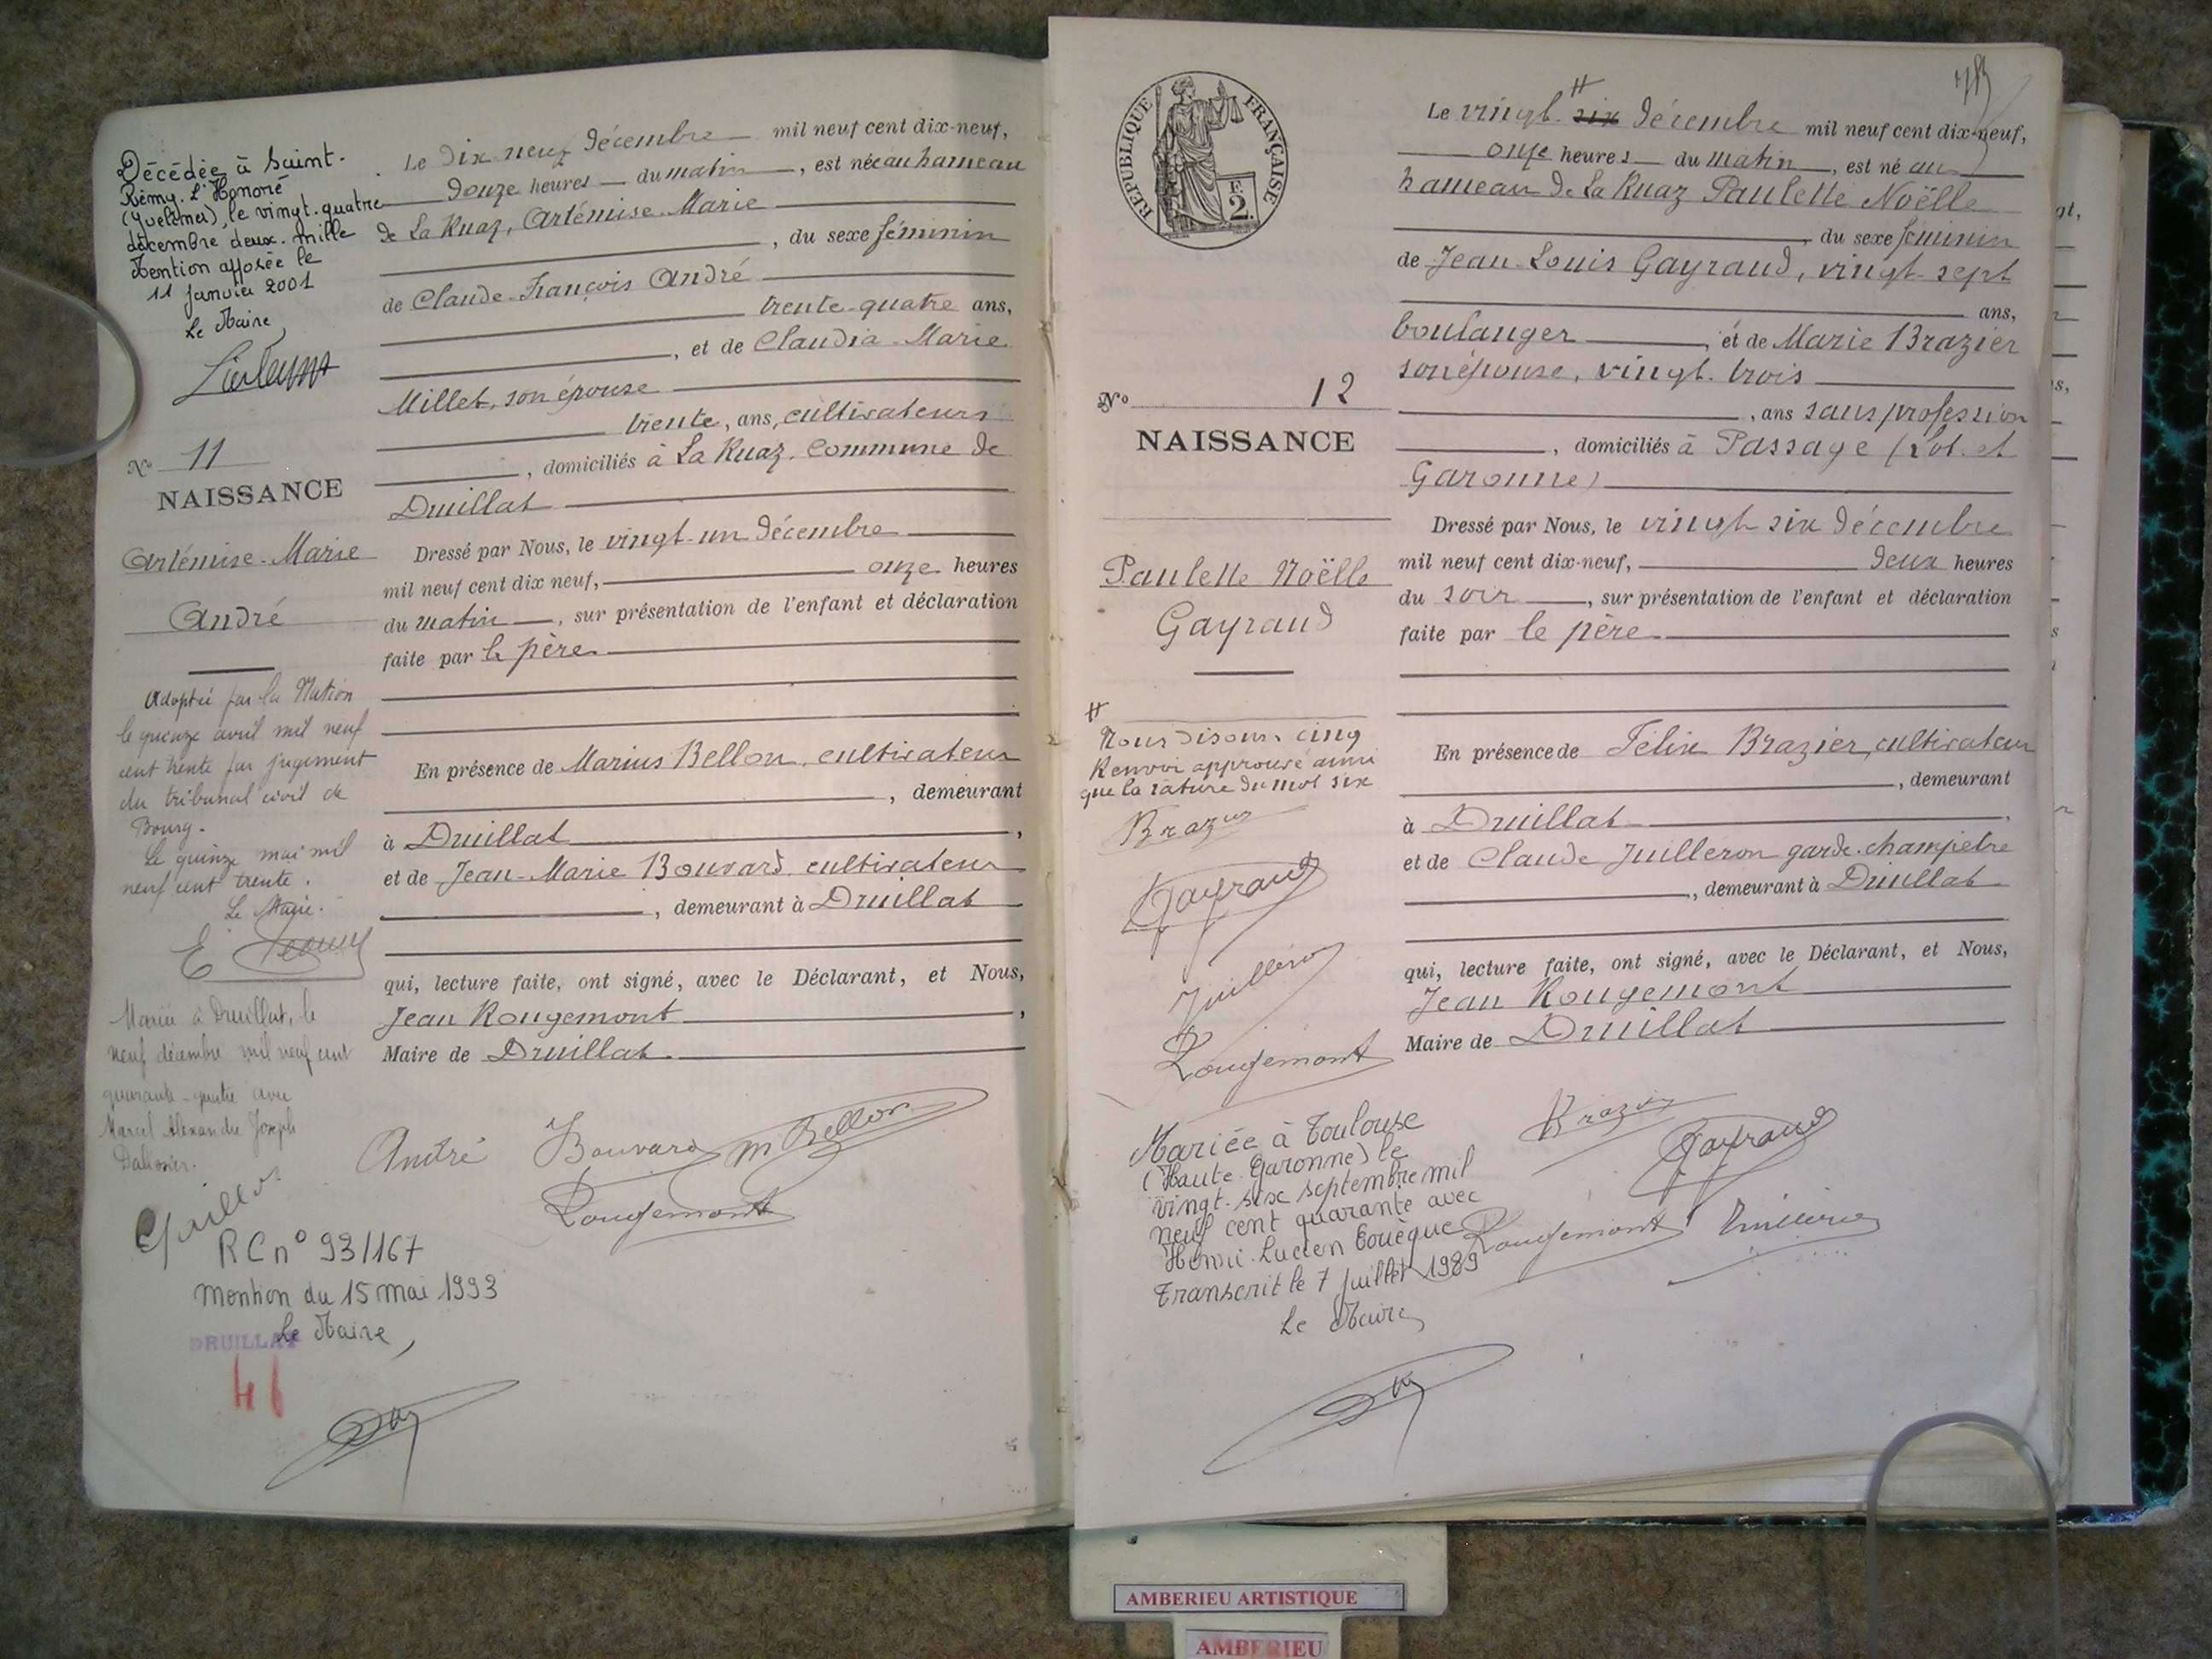 Décédée à Saint-
Rémy-L'Honoré
(Yvelines), le vingt-quatre
décembre deux-mille
Mention apposée le
11 Janvier 2001
Le Maire,
Le Dix neuf Décembre mil neuf cent dix-neuf,
Douze heures du matin, est née au hameau
de La Ruaz, Artémise-Marie
, du sexe féminin
de Claude-François André
trente-quatre ans,
, et de Claudia-Marie
Millet, son épouse
trente, ans, cultivateurs
, domiciliés à La Ruaz, Commune de
Druillat
Nº 11
NAISSANCE
Artémise-Marie
André
Dressé par Nous, le vingt-un Décembre
mil neuf cent dix neuf, onze heures
du matin, sur présentation de l'enfant et déclaration
faite par le père
En présence de Marius Bellon, cultivateur
, demeurant
à Druillat,
et de Jean-Marie Bouvard, cultivateur
, demeurant à Druillat
qui, lecture faite, ont signé, avec le Déclarant, et Nous,
Jean Rougemont,
Maire de Druillat.
Adoptée par la Nation
le quinze avril mil neuf
cent trente par jugement
du tribunal civil de
Bourg.
Le quinze mai mil
neuf cent trente.
Le Maire.
Mariée à Druillat, le
neuf décembre mil neuf cent
quarante-quatre avec
Marcel Alexandre Joseph
André Bouvard M Bellon
Rougemont
RC nº 93/167
Mention du 15 mai 1993
Le Maire,
DRUILLAT
46
RÉPUBLIQUE FRANÇAISE
F.
2.
Le vingt-six # Décembre mil neuf cent dix-neuf,
onze heures du matin, est né au
hameau de La Ruaz Paulette Noëlle
, du sexe féminin
de Jean-Louis Gayraud, vingt-sept
ans,
boulanger, et de Marie Brazier
son épouse, vingt-trois
, ans sans profession
, domiciliés à Passage (Lot-et
Garonne)
Nº 12
NAISSANCE
Paulette Noëlle
Gayraud
Dressé par Nous, le vingt six Décembre
mil neuf cent dix-neuf, Deux heures
du soir, sur présentation de l'enfant et déclaration
faite par le père
En présence de Félix Brazier, cultivateur
, demeurant
à Druillat,
et de Claude Juilleron garde-champêtre
, demeurant à Druillat
qui, lecture faite, ont signé, avec le Déclarant, et Nous,
Jean Rougemont
Maire de Druillat
#
Nous disons cinq
Renvoi approuvé ainsi
que la rature du mot six
Brazier
Gayraud
Juilleron
Rougemont
Mariée à Toulouse
(Haute-Garonne) le
vingt-six septembre mil
neuf cent quarante avec
Henri-Lucien Touèque
Transcrit le 7 Juillet 1989
Le Maire,
Brazier
Gayraud
Rougemont Juilleron
AMBERIEU ARTISTIQUE
AMBERIEU